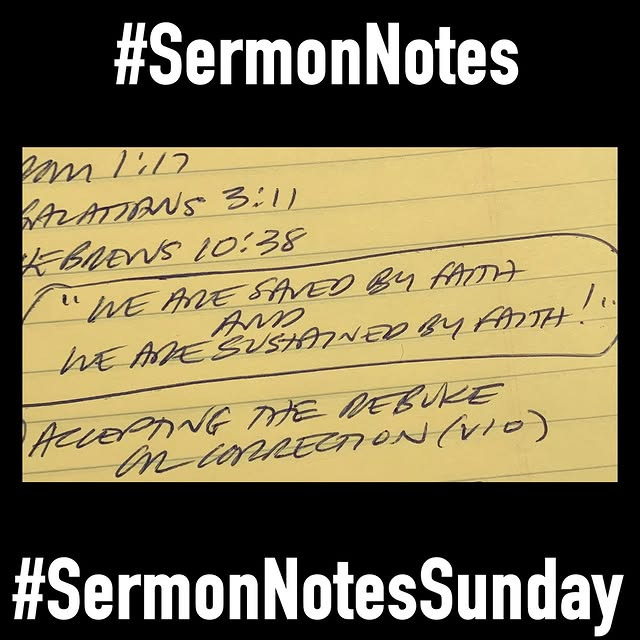 #SermonNotes
ROM 1:17
GALATIANS 3:11
HEBREWS 10:38
"WE ARE SAVED BY FAITH
AND
WE ARE SUSTAINED BY FAITH!"
ACCEPTING THE REBUKE
OR CORRECTION (V10)
#SermonNotesSunday